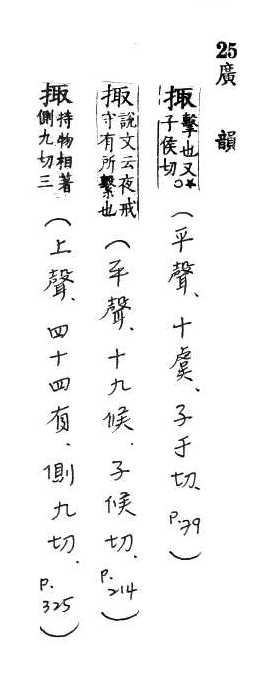 25廣韻
掫擊也又
子侯切。*
(平聲、十虞、子于切、P.79)
掫說文云夜戒
守有所繫也
(平聲、十九候、子候切、P.214)
掫持物相著
側九切三
(上聲、四十四有、側九切、P.325)